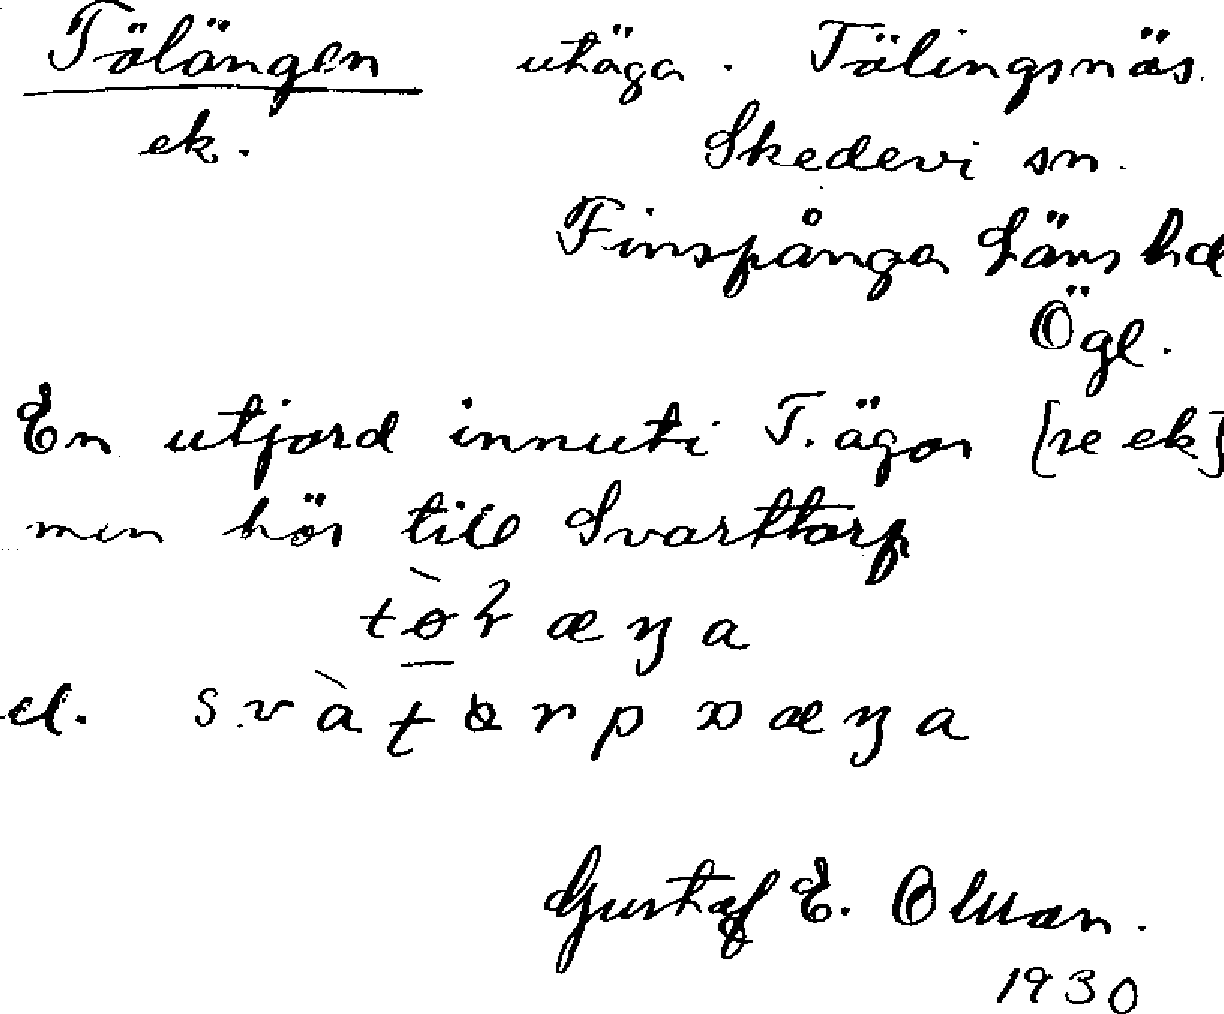 Tölängen utäga. Tölingsnäs.
ek. Skedevi sn.
Finspånga Läns hd
Ögl.
En utjord innuti T. ägor [se ek]
men hör till Svarttorp
el.
Gustaf E. Olsson.
1930